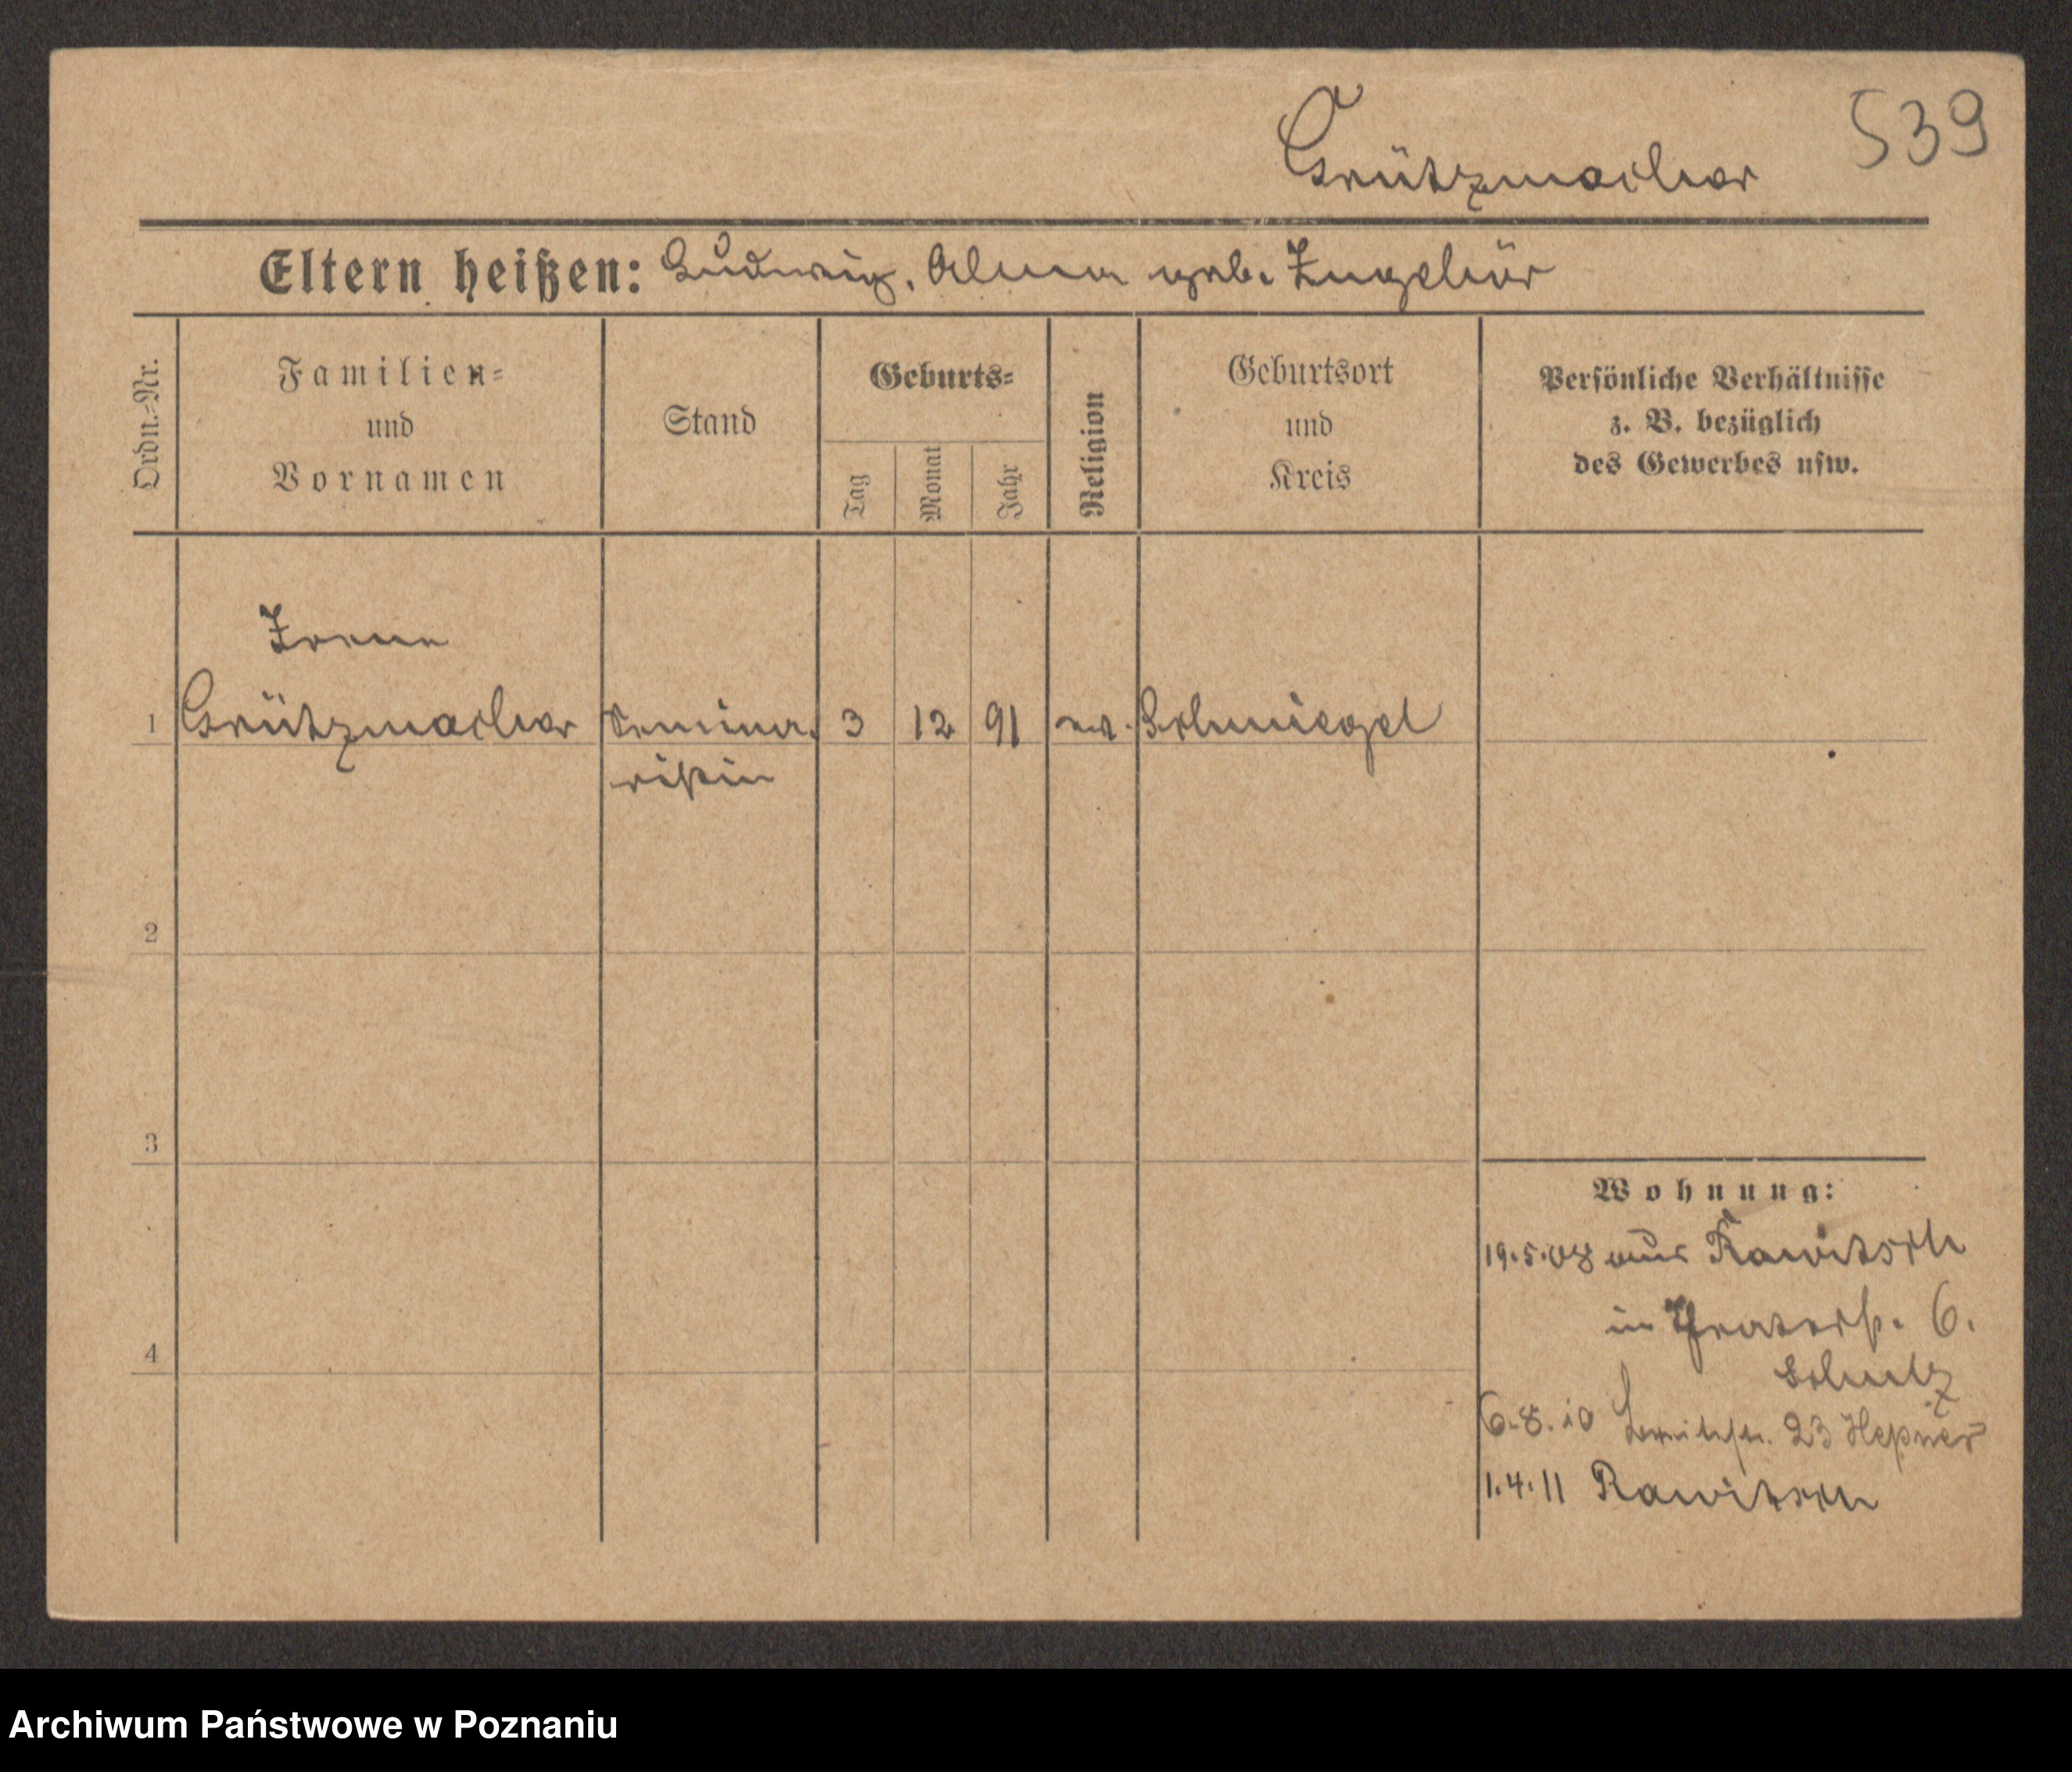 539
Grützmacher
Eltern heißen: Ludwig, Alma geb. Zugehör
Ordn.-Nr.
Familien-
und
Vornamen
Stand
Geburts-
Tag
Monat
Jahr
Religion
Geburtsort
und
Kreis
Persönliche Verhältnisse
z. B. bezüglich
des Gewerbes usw.
Irene
1 Grützmacher Semina- 3 12 91 ev. Schmiegel
ristin
2
3
4
Wohnung:
19.5.08 aus Rawitsch
in 6.
Schulz
6.8.10 23 Hepner
1.4.11 Rawitsch
Archiwum Państwowe w Poznaniu